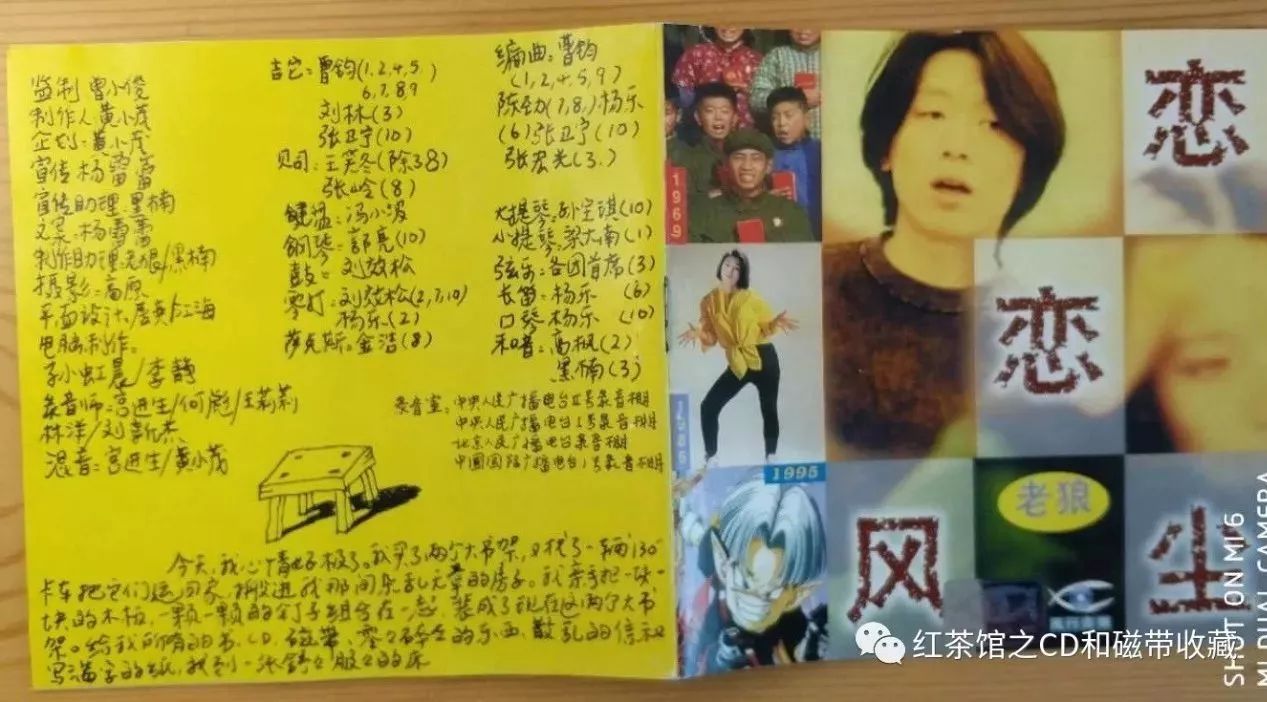 监制 曹小俊
制作人 黄小茂
企划：黄小茂
宣传 杨蕾蕾
宣传助理 黑楠
文案：杨蕾蕾
制作助理 老狼/黑楠
摄影：高原
平面设计：
电脑制作：
李静
录音师：宫进生/何彪/王莉莉
林洋/刘新杰
混音：宫进生/黄小茂
吉它：曹钧(1,2,4,5
6,7,8,9
刘林(3)
张卫宁(10)
贝司：王英冬(除3 8)
张岭(8)
键盘：冯小波
钢琴：郭亮(10)
鼓：刘效松
零打：刘效松(2,7,10)
杨乐(2)
萨克斯：金浩(8)
编曲：曹钧
(1,2,4,5,9)
陈劲(7,8,)杨乐
(6)张卫宁(10)
张宏光(3.)
大提琴：(10)
小提琴：梁大南(1)
弦乐：各团首席(3)
长笛：杨乐 (6)
口琴：杨乐 (10)
和音：高枫(2)
黑楠(3)
录音室：中央人民广播电台2号录音棚
中央人民广播电台1号录音棚
北京人民广播电台录音棚
中国国际广播电台1号录音棚
今天，我心情好极了。我买了两个大书架，又找了一辆130
卡车把它们运回家，搬进我那间杂乱无章的房子。我亲手把一块一
块的木板，一颗一颗的钉子组合在一起，装成了现在这两个大书
架。给我所有的书、CD、磁带、零零碎碎的东西、散乱的信和
写满字的纸，找到一张舒舒服服的床
1969
1985
1995
恋
恋
风
尘
老狼
红茶馆之CD和磁带收藏
SHOT ON MI 6
MI DUAL CAMERA